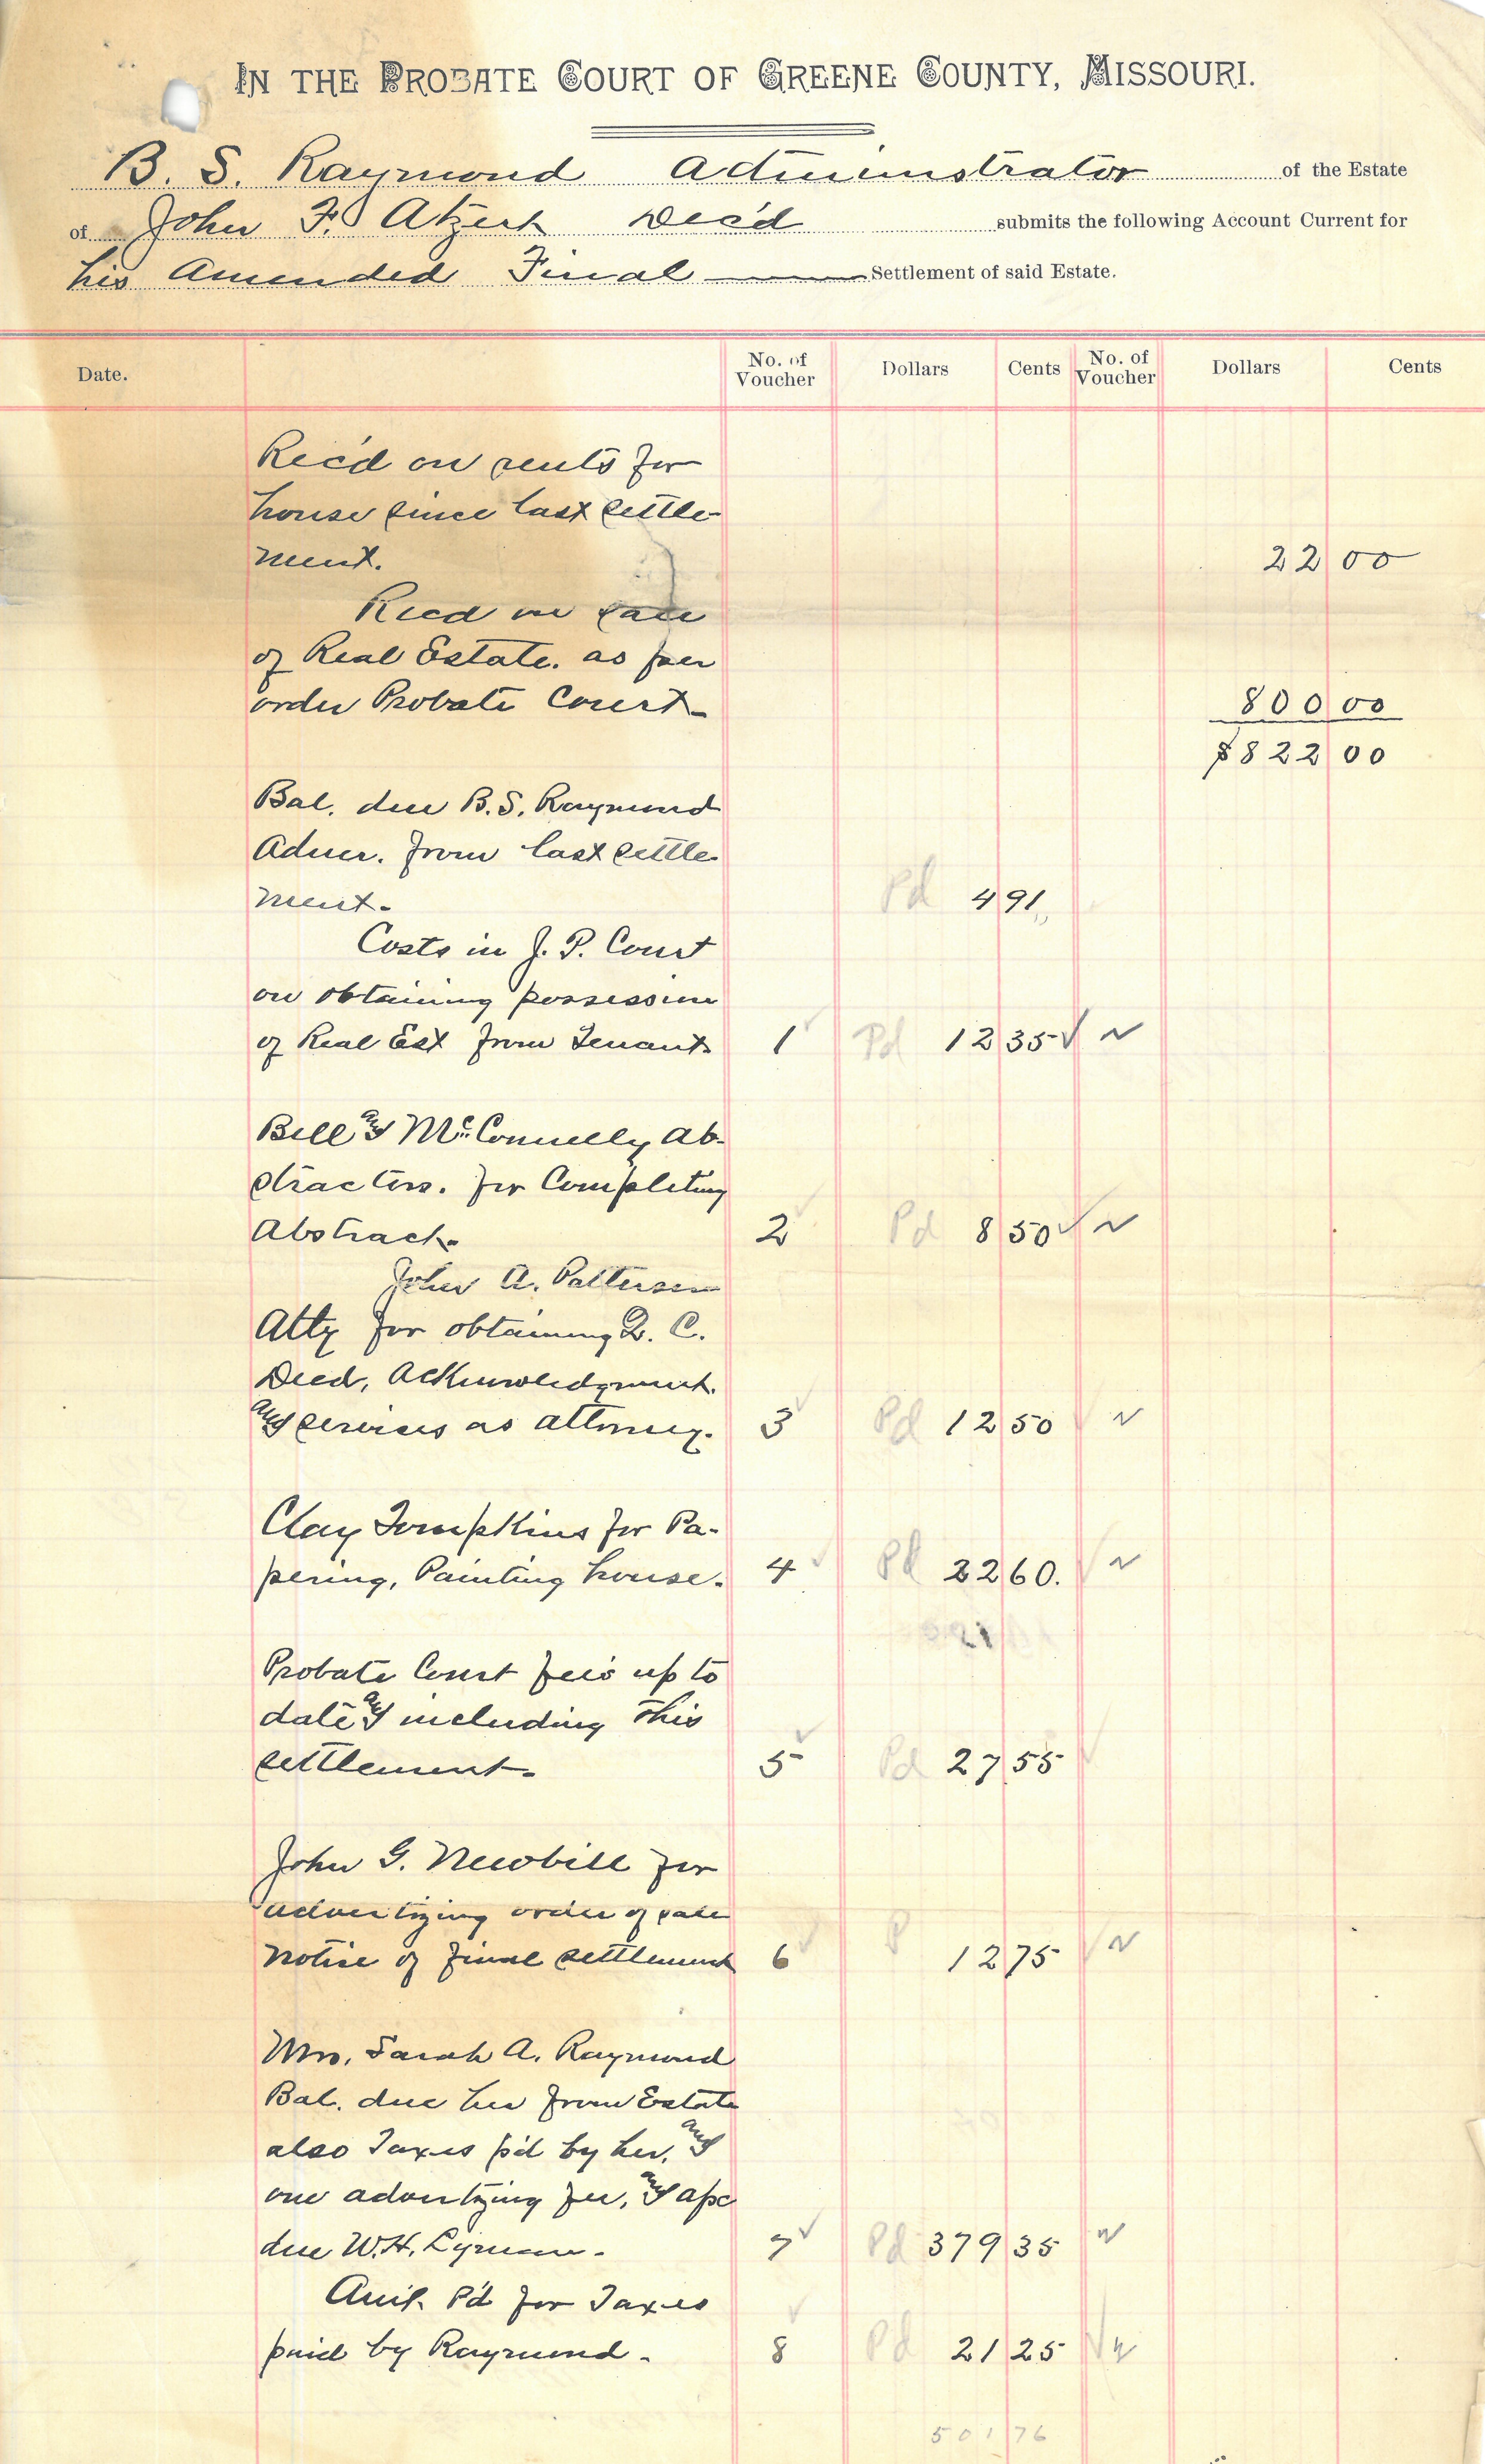 IN THE PROBATE COURT OF GREENE COUNTY, MISSOURI.
B. S. Raymond Administrator of the Estate
of John F. Atzert Dec'd submits the following Account Current for
his Amended Final Settlement of said Estate.
Date. No. of Voucher Dollars Cents No. of Voucher Dollars Cents
Rec'd on rents for
house since last settle-
ment. 22 00
Recd on sale
of Real Estate. as per
order Probate Court 800 00
$822 00
Bal. due B. S. Raymond
Admr. from last settle-
ment. Pd 4 91
Costs in J. P. Court
on obtaining possession
of Real Est from Tenant. 1 Pd 12 35
Bell and McConnelly Ab-
stractors. for Completing
Abstract. 2 Pd 8 50
John A. Patterson
Atty for obtaining Q. C.
Deed, Acknowledgment.
and services as attorney. 3 Pd 12 50
Clay Tompkins for Pa-
pering, Painting house. 4 Pd 22 60.
Probate Court fee's up to
date and including this
settlement. 5 Pd 27 55
John G. Newbill for
advertizing order of sale
notice of final settlement 6 P 12 75
Mrs. Sarah A. Raymond
Bal. due her from Estate
also Taxes p'd by her, and
one advertizing fee, and a/c
due W. H. Lyman. 7 Pd 379 35
Amt. P'd for Taxes
paid by Raymond. 8 Pd 21 25
501 76